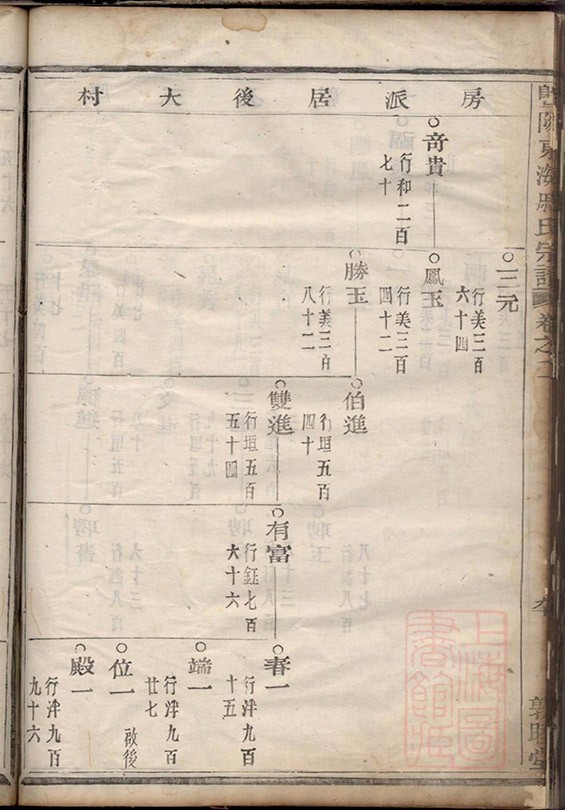 房派居後大村
奇貴
行和二百
七十
三元
行美三百
六十四
鳳玉
行美三百
四十二
勝玉
行美三百
八十二
伯進
行垣五百
四十
雙進
行垣五百
五十四
有富
行鈺七百
六十六
春一
行泮九百
十五
端一
行泮九百
廿七
位一
啟後
殿一
行泮九百
九十六
東海
氏宗譜
卷之二
上海圖書館藏